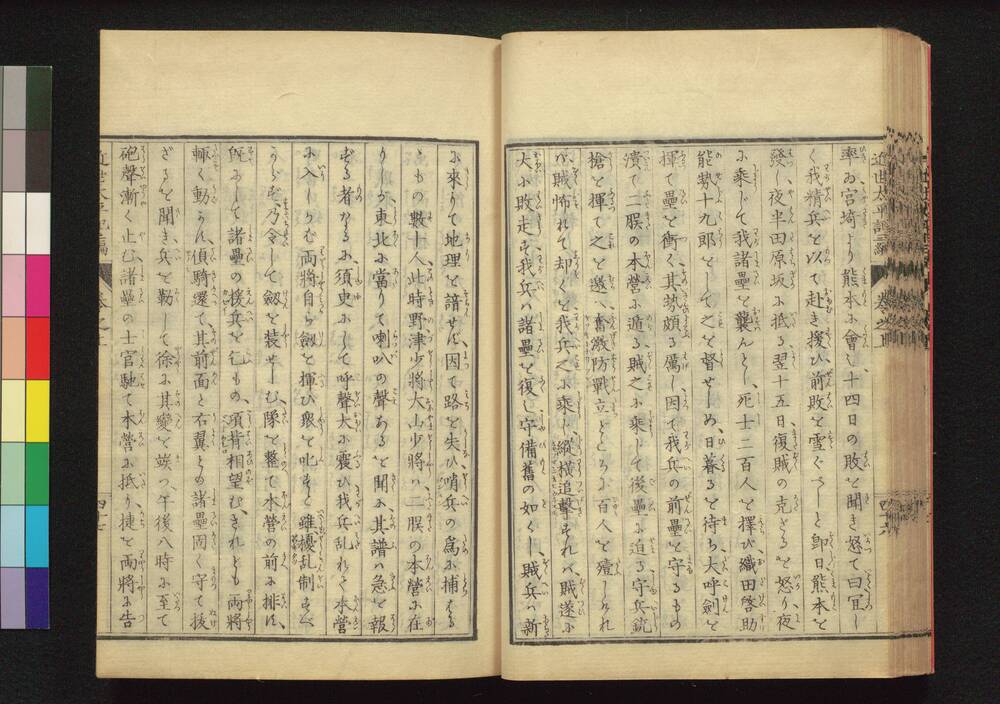 率ゐ宮埼より熊本に會し十四日の敗を聞き怒て曰冝し
く我精兵を以て赴き援ひ前敗を雪ぐべしと即日熊本を
發し夜半田原坂に抵る翌十五日復賊の克ざるを怒り夜
に乘じて我諸壘を襲んとし死士二百人を擇び織田啓助
能勢十九郎をして之を督せしめ日暮るを待ち大呼劍を
揮て壘を衝く其勢頗る厲し因て我兵の前壘を守るもの
潰て二脵の本營に遁る賊之に乘じて後壘に追る守兵銃
槍を揮て之を邀へ奮激防戰立どころに百人を殪しけれ
バ賊怖れて却くを我兵之に乘じ縱横追撃すれバ賊遂に
大に敗走す我兵ハ諸壘を復し守備舊の如くし賊兵ハ新
に來りて地理を諳せず因て路を失ひ哨兵の爲に捕はる
ゝもの數十人此時野津少將大山少將ハ二脵の本營に在
りしが東北に當りて喇叭の聲あるを聞に其譜の急を報
ずる者なるに須史にして呼聲大に震ひ我兵乱れて本營
に入しかば両將自ら劔を揮ひ衆を叱すと雖擾乱制すべ
からず乃令して劔を装せしむ隊を整て本營の前に排は
既にして諸壘の援兵を乞もの項背相望むされども両將
輙く動かれ偵騎還て其前面と右翼との諸壘固く守て拔
ざるを聞き兵を勒して徐に其變を竢つ午後八時に至て
砲聲漸く止む諸壘の士官馳て本營に抵り捷を両將に告
近世太平記
四十六